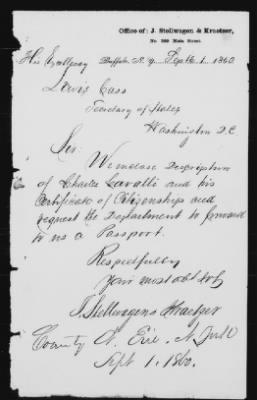 Office of: J. Stellwagen & Kraetzer,
No. Main Street.
His Excellency Buffalo N. Y. Sept 1. 1860
Lewis Cass
Secretary of State
Washington D.C
Sir:
We inclose Description
of Charles Cavalli and his
Certificate of Citizenship and
request the Department to forward
to us a Passport.
Respectfully
Your most obt
J. Stellwagen & Kraetzer
County of Erie. N.
Sept 1. 1860.